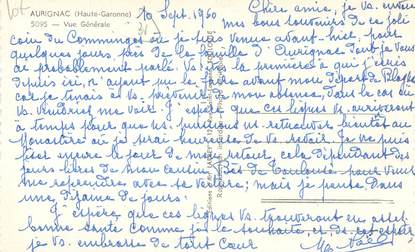 AURIGNAC (Haute-Garonne)
5095 — Vue Générale
10 Sept. 1960
Chère amie, je vs. envoie
mes bons souvenirs de ce joli
coin du Comminges où je suis venue avant-hier, pour
quelques jours, près de la famille d'Aurignac dont je vous
ai probablement parlé. Vs. êtes la première à qui j'écris
depuis ici, n'ayant pu le faire avant mon départ de
car je tenais à vs. prévenir de mon absence, dans le cas où
vs. viendriez me voir. J'espère que ces lignes vs. arriveront
à temps pour que ns. puissions ns. retrouver bientôt au
Monastère où je serai heureuse de vs. revoir. Je ne puis
fixer encore le jour de mon retour, cela dépendant des
jours libres de mon cousin de Toulouse pour venir
me reprendre avec sa voiture ; mais je pense dans
une dizaine de jours.
J'espère que ces lignes vs. trouveront en assez
bonne santé comme je le souhaite, et
je vs. embrasse de tout cœur